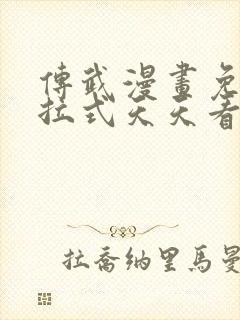 傳武漫畫免
拉式天天看
拉喬納里馬曼